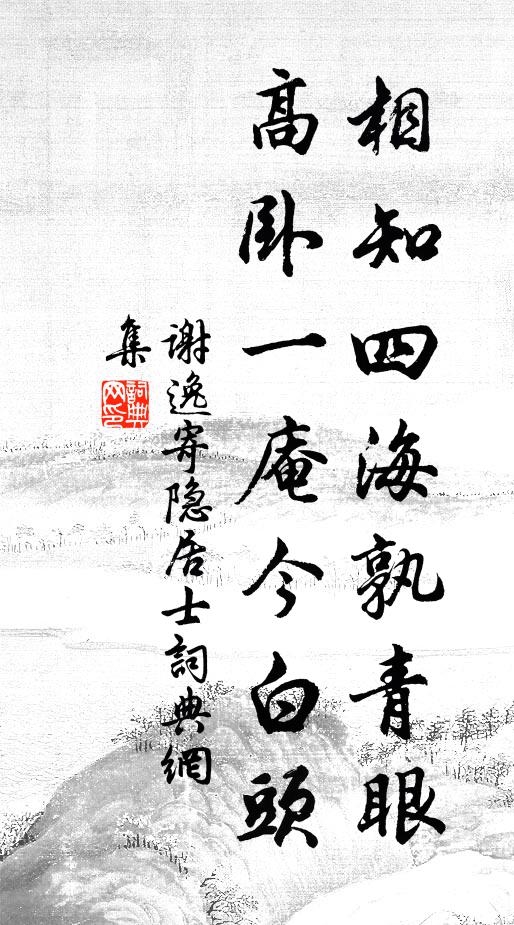 相知四海孰青眼
高卧一庵今白頭
謝逸寄隐居士詞典網
集
詞典网印